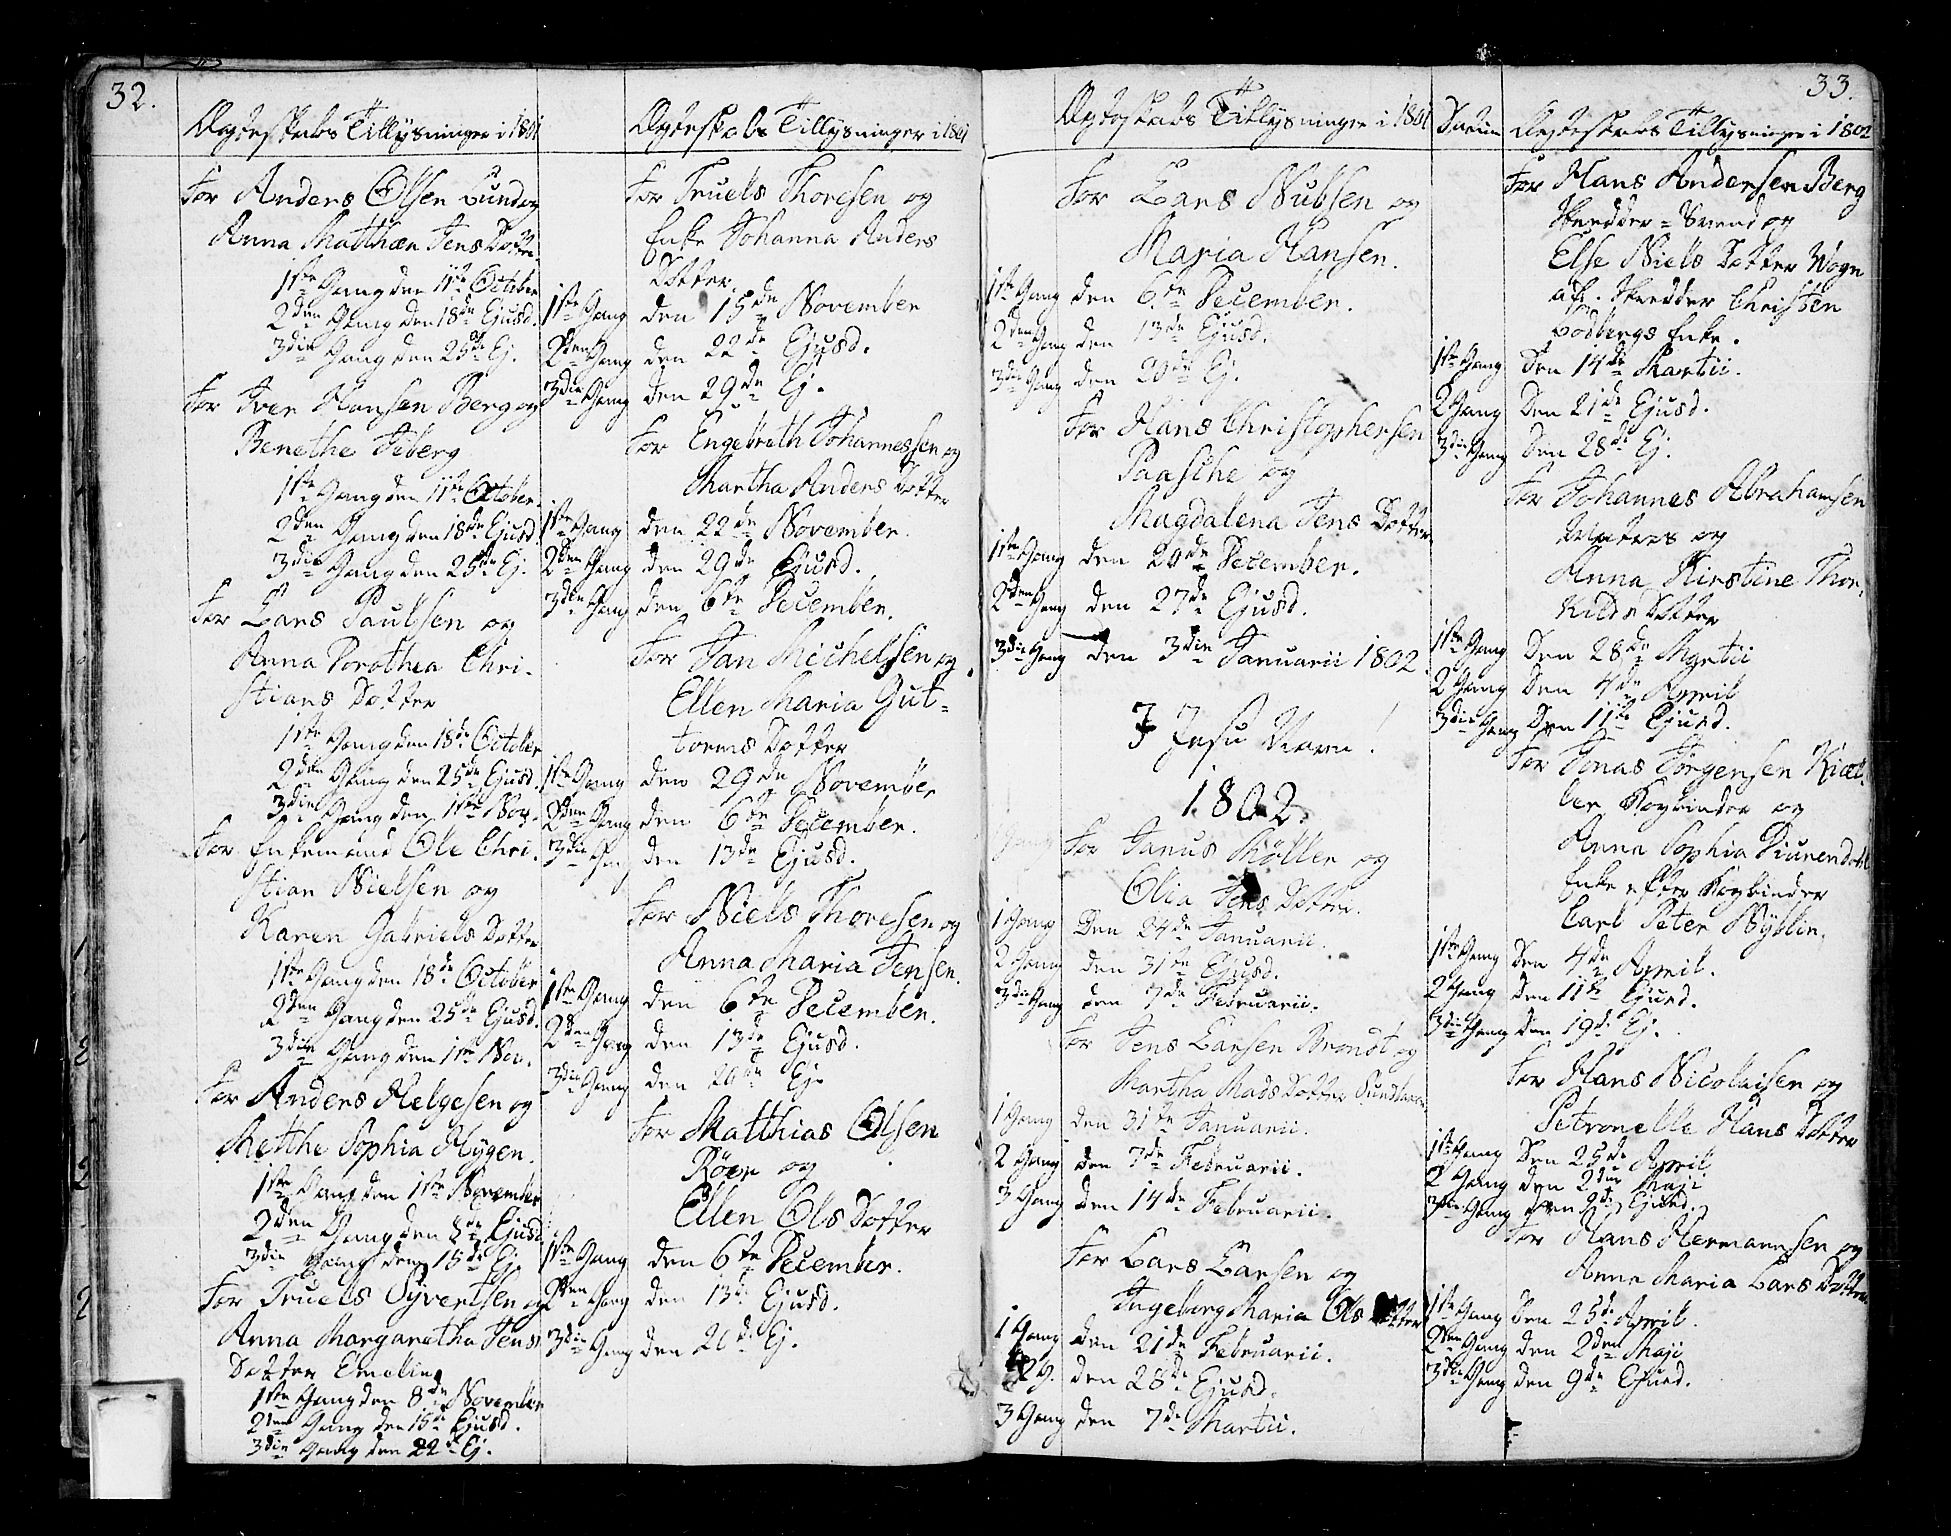 32.
Ægteskabs Tillysninger i 1801
For Anders Olsen Lund og
Anna Matthæa Jens Dotter
1ste Gang den 11te October
2den Gang den 18de Ejusd.
3die Gang den 25de Ej.
For Iver Hansen Berg og
Benethe Feberg
1ste Gang den 11te October.
2den Gang den 18de Ejusd
3die Gang den 25de Ej.
For Lars Paulsen og
Anna Dorothea Chri-
stians Dotter
1ste Gang den 18de October
2den Gang den 25de Ejusd.
3die Gang den 1ste Nov.
For Enkemand Ole Chri-
stian Nielsen og
Karen Gabriels Dotter
1ste Gang den 18de October
2den Gang den 25de Ejusd.
3die Gang den 1ste Nov.
For Anders Helgesen og
Methe Sophia Hygen.
1ste Gang den 1ste November
2den Gang den 8de Ejusd.
3die Gang den 15de Ej.
For Truels Syvertsen og
Anna Margaretha Jens
Dotter Emelin
1ste Gang den 8de November
2den Gang den 15de Ejusd.
3die Gang den 22de Ej.
Ægteskabs Tillysninger i 1801
For Truels Thoresen og
Enke Johanna Anders
Dotter.
1ste Gang den 15de November
2den Gang den 22de Ejusd.
3die Gang den 29de Ej.
For Engebreth Johannessen og
Martha Anders Dotter
1ste Gang den 22de November.
2den Gang den 29de Ejusd.
3die Gang den 6te December.
For Jan Michelsen og
Ellen Maria Gut-
torms Dotter
1ste Gang den 29de November
2den Gang den 6te December.
3die Gang den 13de Ejusd.
For Niels Thoresen og
Anna Maria Jensen.
1ste Gang den 6te December.
2den Gang den 13de Ejusd.
3die Gang den 20de Ej.
For Matthias Olsen
Röer og
Ellen Ols Dotter
1ste Gang den 6te December.
2den Gang den 13de Ejusd.
3die Gang den 20de Ej.
Ægteskabs Tillysninger i 1801
For Lars Nubsen og
Maria Hansen.
1ste Gang den 6te December.
2den Gang den 13de Ejusd.
3die Gang den 20de Ej.
For Hans Christophersen
Paasche og
Magdalena Jens Dotter
1ste Gang den 20de December.
2den Gang den 27de Ejusd.
3die Gang den 3die Januarii 1802.
I Jesu Navn!
1802.
For Janus Møller og
Olia Jens Dotter.
1 Gang Den 24de Januarii.
2 Gang den 31te Ejusd.
3die Gang den 7de Februarii.
For Jens Larsen Brandt og
Martha Mads Dotter
1 Gang den 31te Januarii.
2 Gang den 7de Februarii.
3 Gang den 14de Februarii.
For Lars Larsen og
Ingeborg Maria Ols Dotter
1 Gang den 21de Februarii.
2 G. den 28de Ejusd.
3 Gang den 7de Martii.
33.
Datum Ægteskabs Tillysninger i 1802
For Hans Andersen Berg
Skrædder-Svend og
Else Niels Dotter Wogn
afl. Skrædder Christen
Bodbergs Enke.
1ste Gang Den 14de Martii.
2 Gang Den 21de Ejusd.
3die Gang Den 28de Ej.
For Johannes Abrahamsen
Matros og
Anna Kirstine Thor-
kilds Dotter
1ste Gang Den 28de Martii
2 Gang Den 4de April
3die Gang Den 11te Ejusd.
For Jonas Jørgensen Kiæl-
ber Bogbinder og
Anna Sophia
Enke efter Bogbinder
Carl Peter Nyblin.
1ste Gang Den 4de April.
2 Gang Den 11te Ejusd.
3die Gang Den 19de Ej.
For Hans Nicolaisen og
Petronelle Hans Dotter
1ste Gang Den 25de April
2 Gang den 2den Maji
3die Gang den 9de Ejusd.
For Hans Hermannsen og
Anna Maria Lars Dotter
1ste Gang Den 25de April.
2den Gang den 2den Maji
3die Gang den 9de Ejusd.